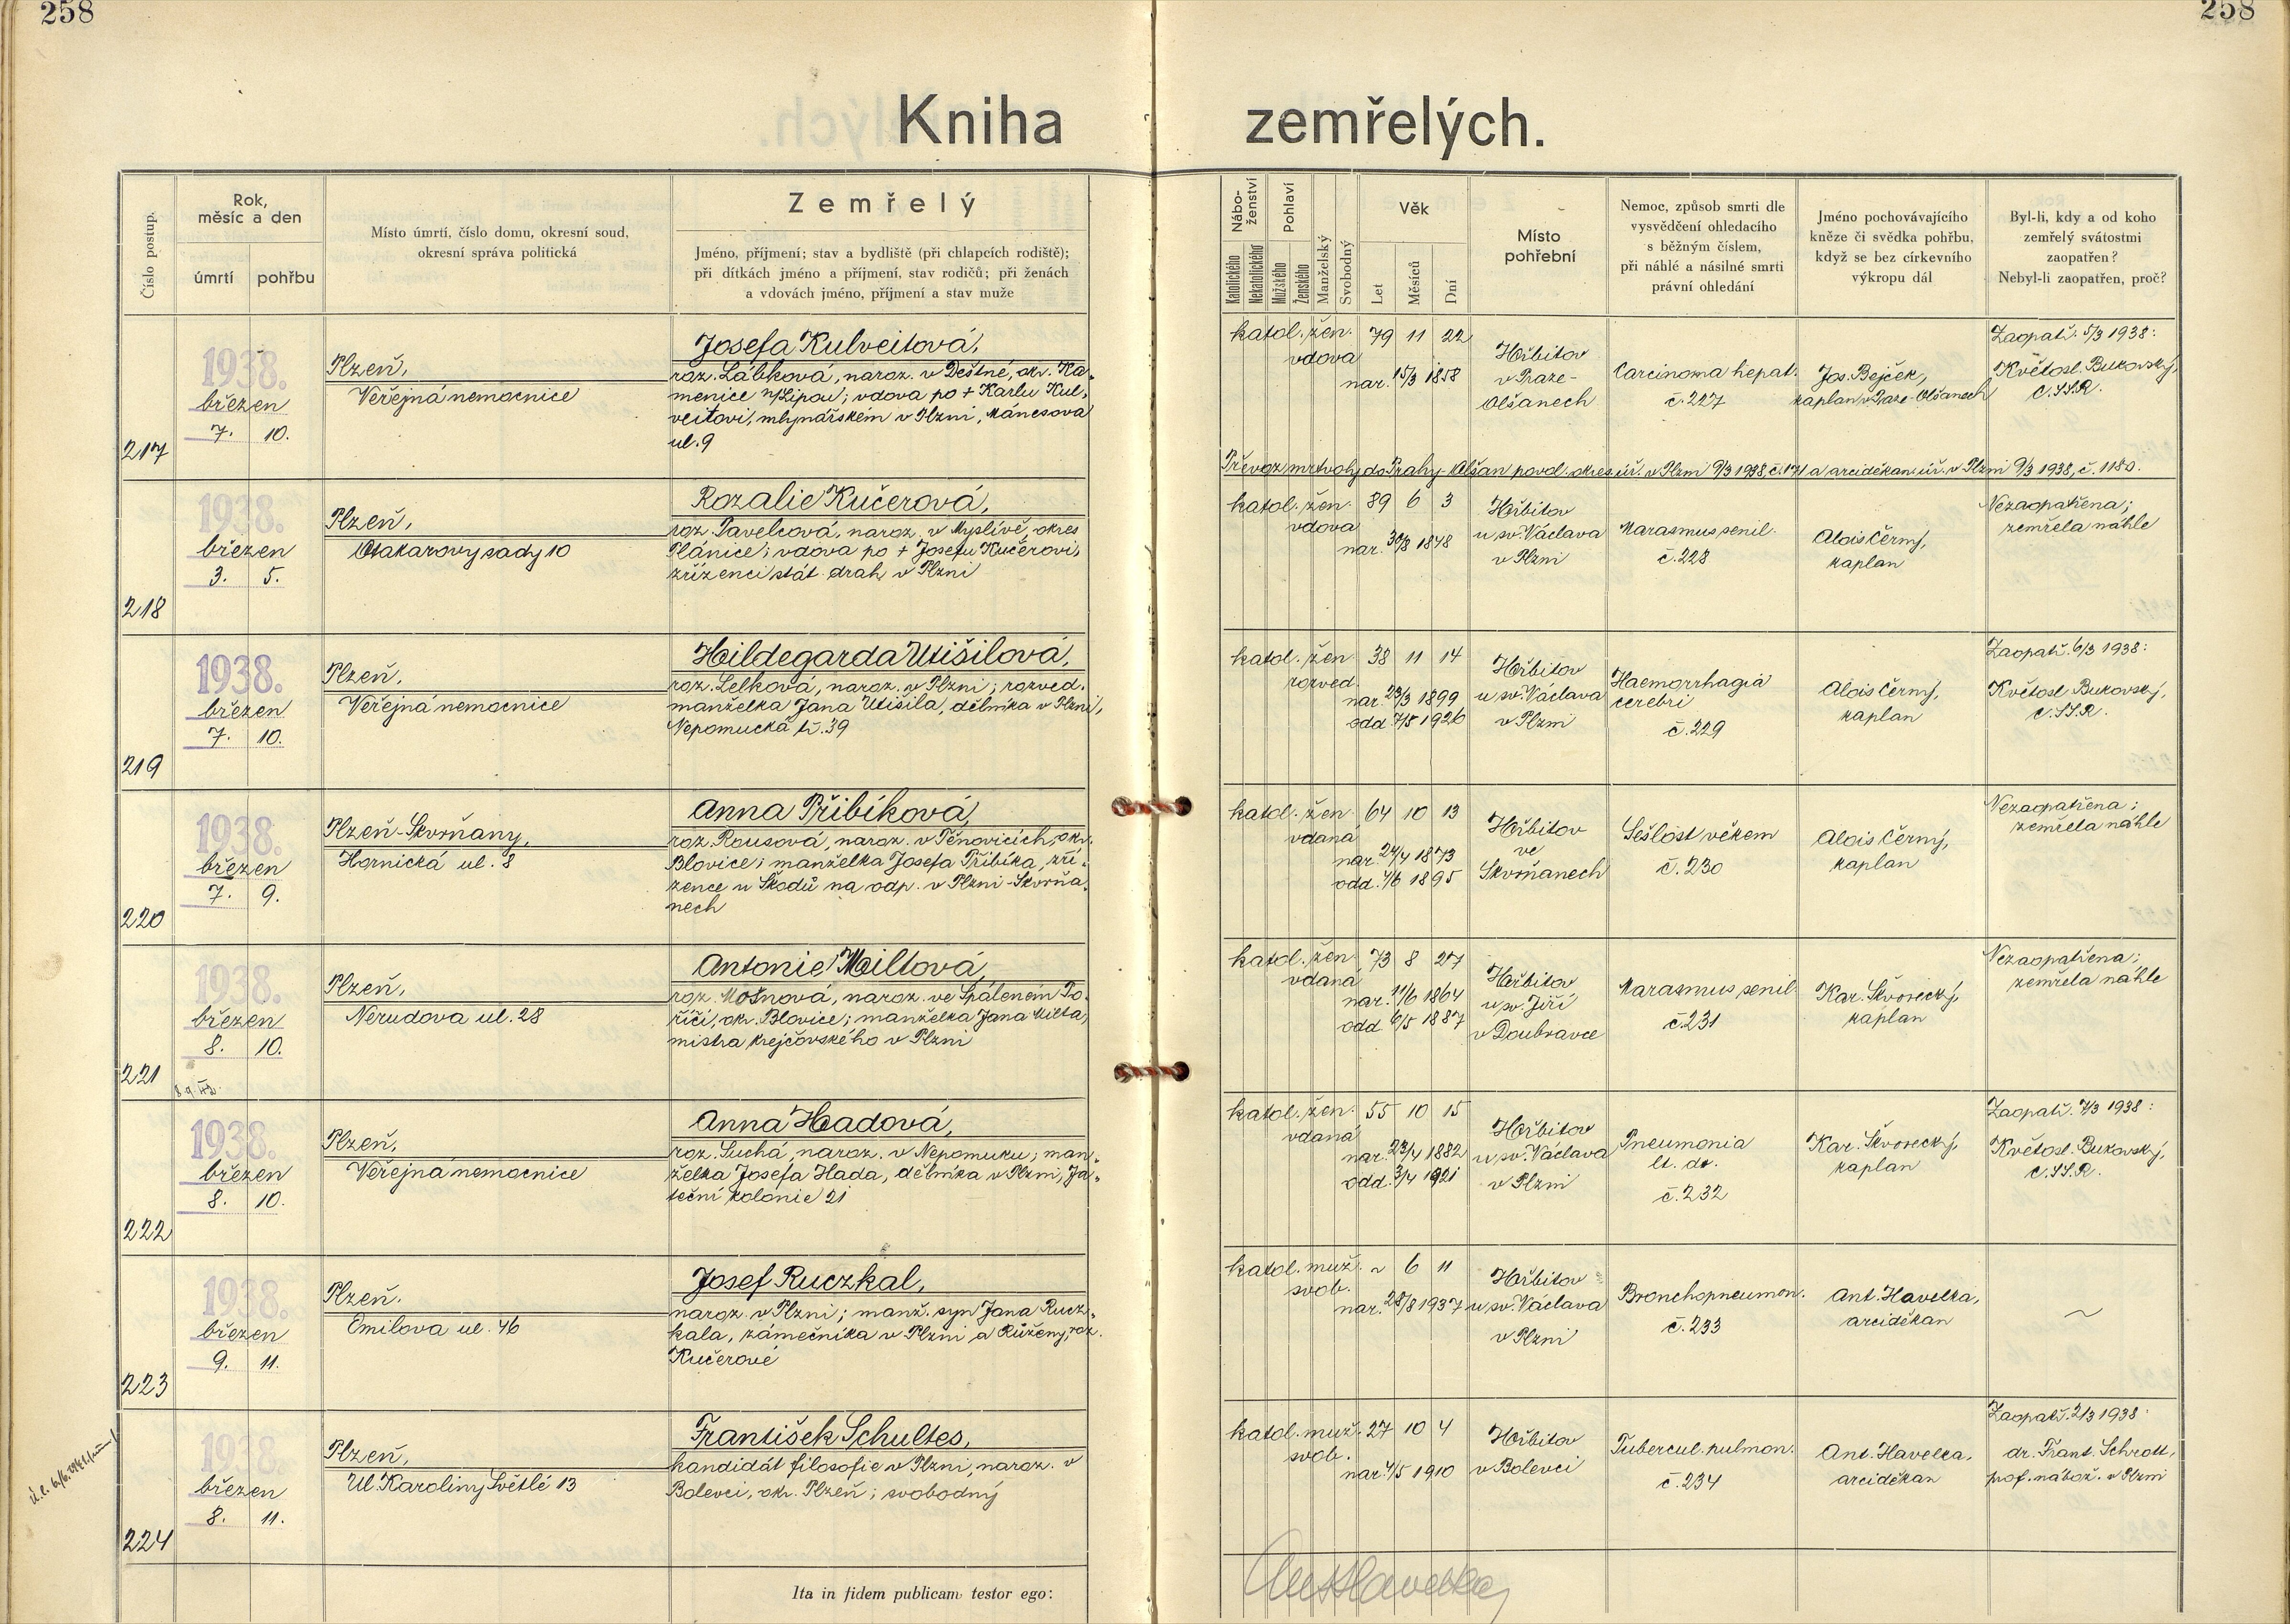 258
258
Kniha zemřelých.
Číslo postup.
Rok,
měsíc a den
úmrtí
pohřbu
Místo úmrtí, číslo domu, okresní soud,
okresní správa politická
Zemřelý
Jméno, příjmení; stav a bydliště (při chlapcích rodiště);
při dítkách jméno a příjmení, stav rodičů; při ženách
a vdovách jméno, příjmení a stav muže
Nábo-
ženství
Katolického
Nekatolického
Pohlaví
Mužského
Ženského
Manželský
Svobodný
Věk
Let
Měsíců
Dní
Místo
pohřební
Nemoc, způsob smrti dle
vysvědčení ohledacího
s běžným číslem,
při náhlé a násilné smrti
právní ohledání
Jméno pochovávajícího
kněze či svědka pohřbu,
když se bez církevního
výkropu dál
Byl-li, kdy a od koho
zemřelý svátostmi
zaopatřen?
Nebyl-li zaopatřen, proč?
217
1938.
březen
7. 10.
Plzeň,
Veřejná nemocnice
Josefa Kulveitová,
roz. Lábková, naroz. v Deštné, okr. Ka-
menice n/Lipou; vdova po + Karlu Kul-
veitovi, mlynářském v Plzni, Mánesova
ul. 9
katol. žen. 79 11 22
vdova
nar. 15/3 1858
Hřbitov
v Praze-
Olšanech
Carcinoma hepat.
č. 227
Jos. Bejček,
kaplan v Praze-Olšanech
Zaopatř. 5/3 1938:
Květosl. Bukovský,
C.SS.R.
Převoz mrtvoly do Prahy-Olšan povol. okres. úř. v Plzni 9/3 1938, č. 171 a arciděkan. úř. v Plzni 9/3 1938, č. 1180.
218
1938.
březen
3. 5.
Plzeň,
Otakarovy sady 10
Rozalie Kučerová,
roz. Pavelcová, naroz. v Myslívě, okres
Plánice; vdova po + Josefu Kučerovi,
zřízenci stát. drah v Plzni
katol. žen. 89 6 3
vdova
nar. 30/8 1848
Hřbitov
u sv. Václava
v Plzni
Marasmus senil.
č. 228
Alois Černý,
kaplan
Nezaopatřena;
zemřela náhle
219
1938.
březen
7. 10.
Plzeň,
Veřejná nemocnice
Hildegarda Utišilová,
roz. Lelková, naroz. v Plzni; rozved.
manželka Jana Utišila, dělníka v Plzni,
Nepomucká tř. 39
katol. žen. 38 11 14
rozved.
nar. 23/3 1899
odd. 7/5 1926
Hřbitov
u sv. Václava
v Plzni
Haemorrhagia
cerebri
č. 229
Alois Černý,
kaplan
Zaopatř. 6/3 1938:
Květosl. Bukovský,
C.SS.R.
220
1938.
březen
7. 9.
Plzeň-Skvrňany,
Hornická ul. 8
Anna Přibíková,
roz. Rousová, naroz. v Těnovicích, okr.
Blovice; manželka Josefa Přibíka, zří-
zence u Škodů na odp. v Plzni-Skvrňa-
nech
katol. žen. 64 10 13
vdaná
nar. 24/4 1873
odd. 4/6 1895
Hřbitov
ve
Skvrňanech
Sešlost věkem
č. 230
Alois Černý,
kaplan
Nezaopatřena;
zemřela náhle
221
1938.
březen
8. 10.
Plzeň,
Nerudova ul. 28
Antonie Miltová,
roz. Mošnová, naroz. ve Spáleném Po-
říčí, okr. Blovice; manželka Jana Milta,
mistra krejčovského v Plzni
katol. žen. 73 8 27
vdaná
nar. 11/6 1864
odd. 6/5 1887
Hřbitov
u sv. Jiří
v Doubravce
Marasmus senil.
č. 231
Kar. Škvorecký,
kaplan
Nezaopatřena;
zemřela náhle
222
1938.
březen
8. 10.
Plzeň,
Veřejná nemocnice
Anna Hadová,
roz. Suchá, naroz. v Nepomuku; man-
želka Josefa Hada, dělníka v Plzni, Ja-
teční kolonie 21
katol. žen. 55 10 15
vdaná
nar. 23/4 1882
odd. 3/4 1921
Hřbitov
u sv. Václava
v Plzni
Pneumonia
lt. dx.
č. 232
Kar. Škvorecký,
kaplan
Zaopatř. 7/3 1938:
Květosl. Bukovský,
C.SS.R.
223
1938.
březen
9. 11.
Plzeň,
Emilova ul. 46
Josef Ruczkal,
naroz. v Plzni; manž. syn Jana Rucz-
kala, zámečníka v Plzni a Růženy, roz.
Kučerové
katol. muž. ~ 6 11
svob.
nar. 28/8 1937
Hřbitov
u sv. Václava
v Plzni
Bronchopneumon.
č. 233
Ant. Havelka,
arciděkan
~
224
1938.
březen
8. 11.
Plzeň,
Ul. Karoliny Světlé 13
František Schultes,
kandidát filosofie v Plzni, naroz. v
Bolevci, okr. Plzeň; svobodný
katol. muž. 27 10 4
svob.
nar. 4/5 1910
Hřbitov
v Bolevci
Tubercul. pulmon.
č. 234
Ant. Havelka,
arciděkan
Zaopatř. 2/3 1938:
dr. Frant. Schrott,
prof. nábož. v Plzni
Ita in fidem publicam testor ego:
Ant Havelka